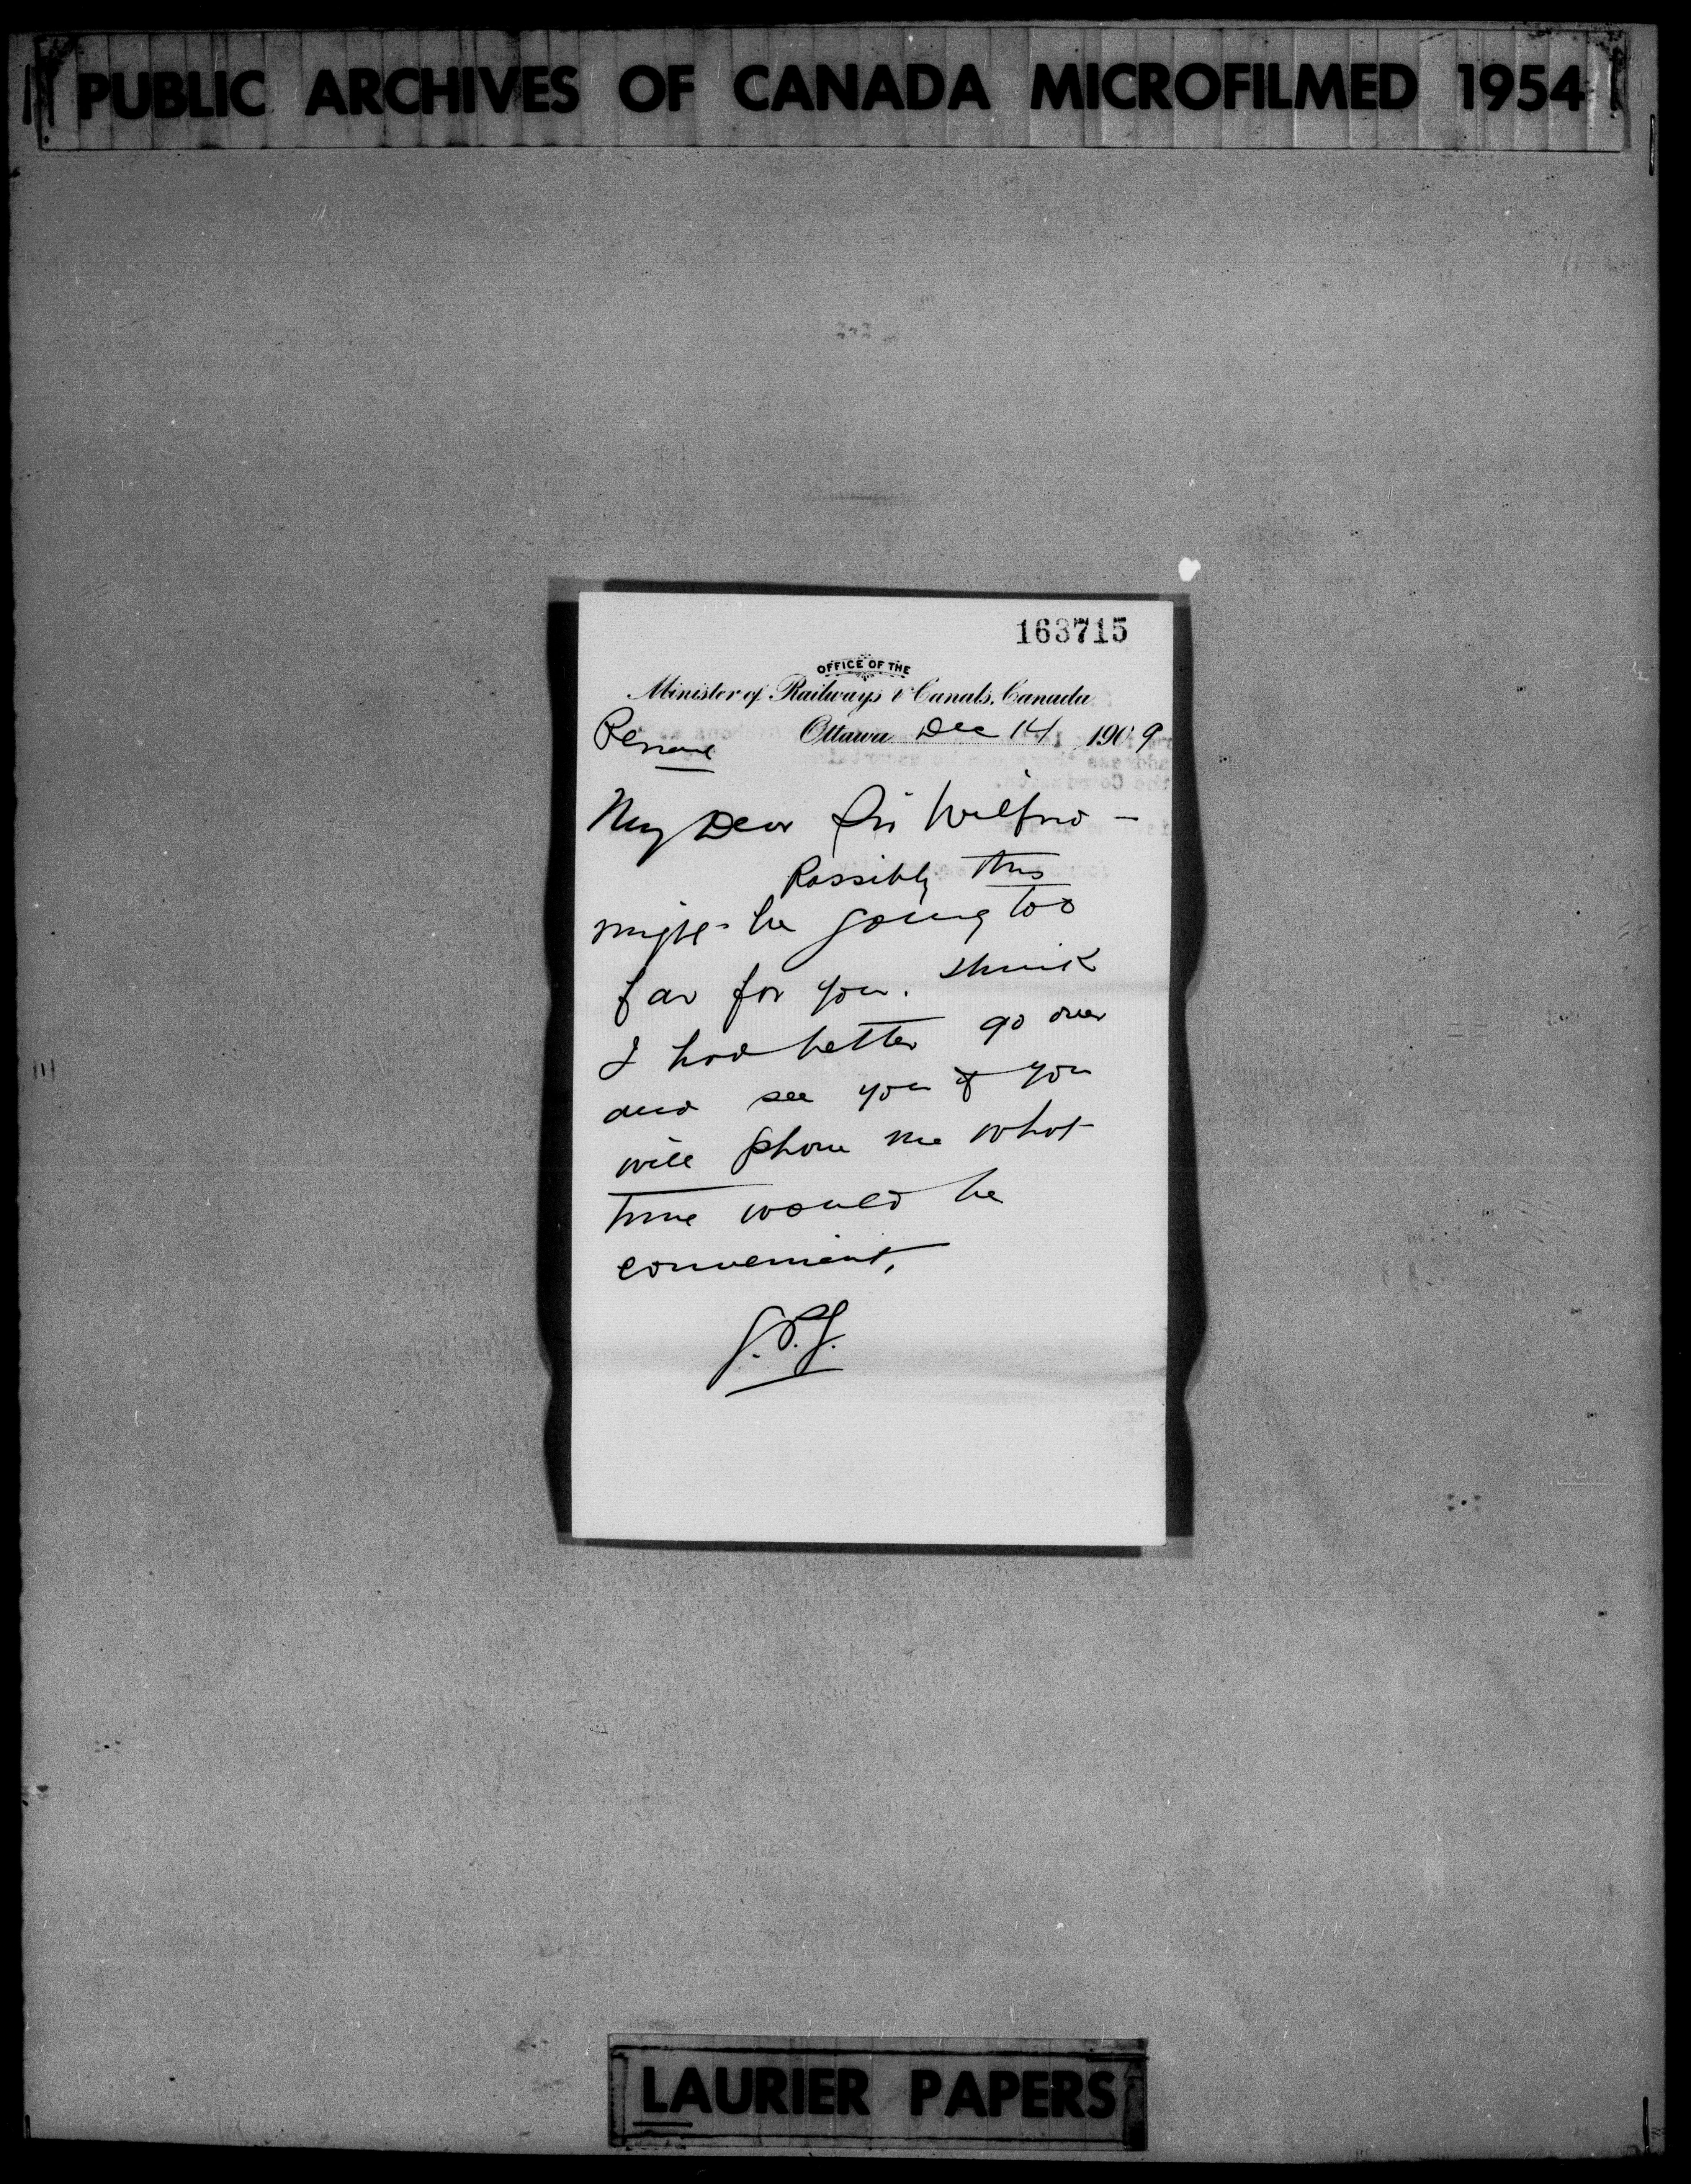 PUBLIC ARCHIVES OF CANADA MICROFILMED 1954
163715
OFFICE OF THE
Minister of Railways & Canals, Canada
Ottawa Dec 14 1909
Personal
My Dear Sir Wilfrid —
Possibly this
might be going too
far for you. Think
I had better go over
and see you if you
will phone me what
time would be
convenient,
G.P.G.
LAURIER PAPERS